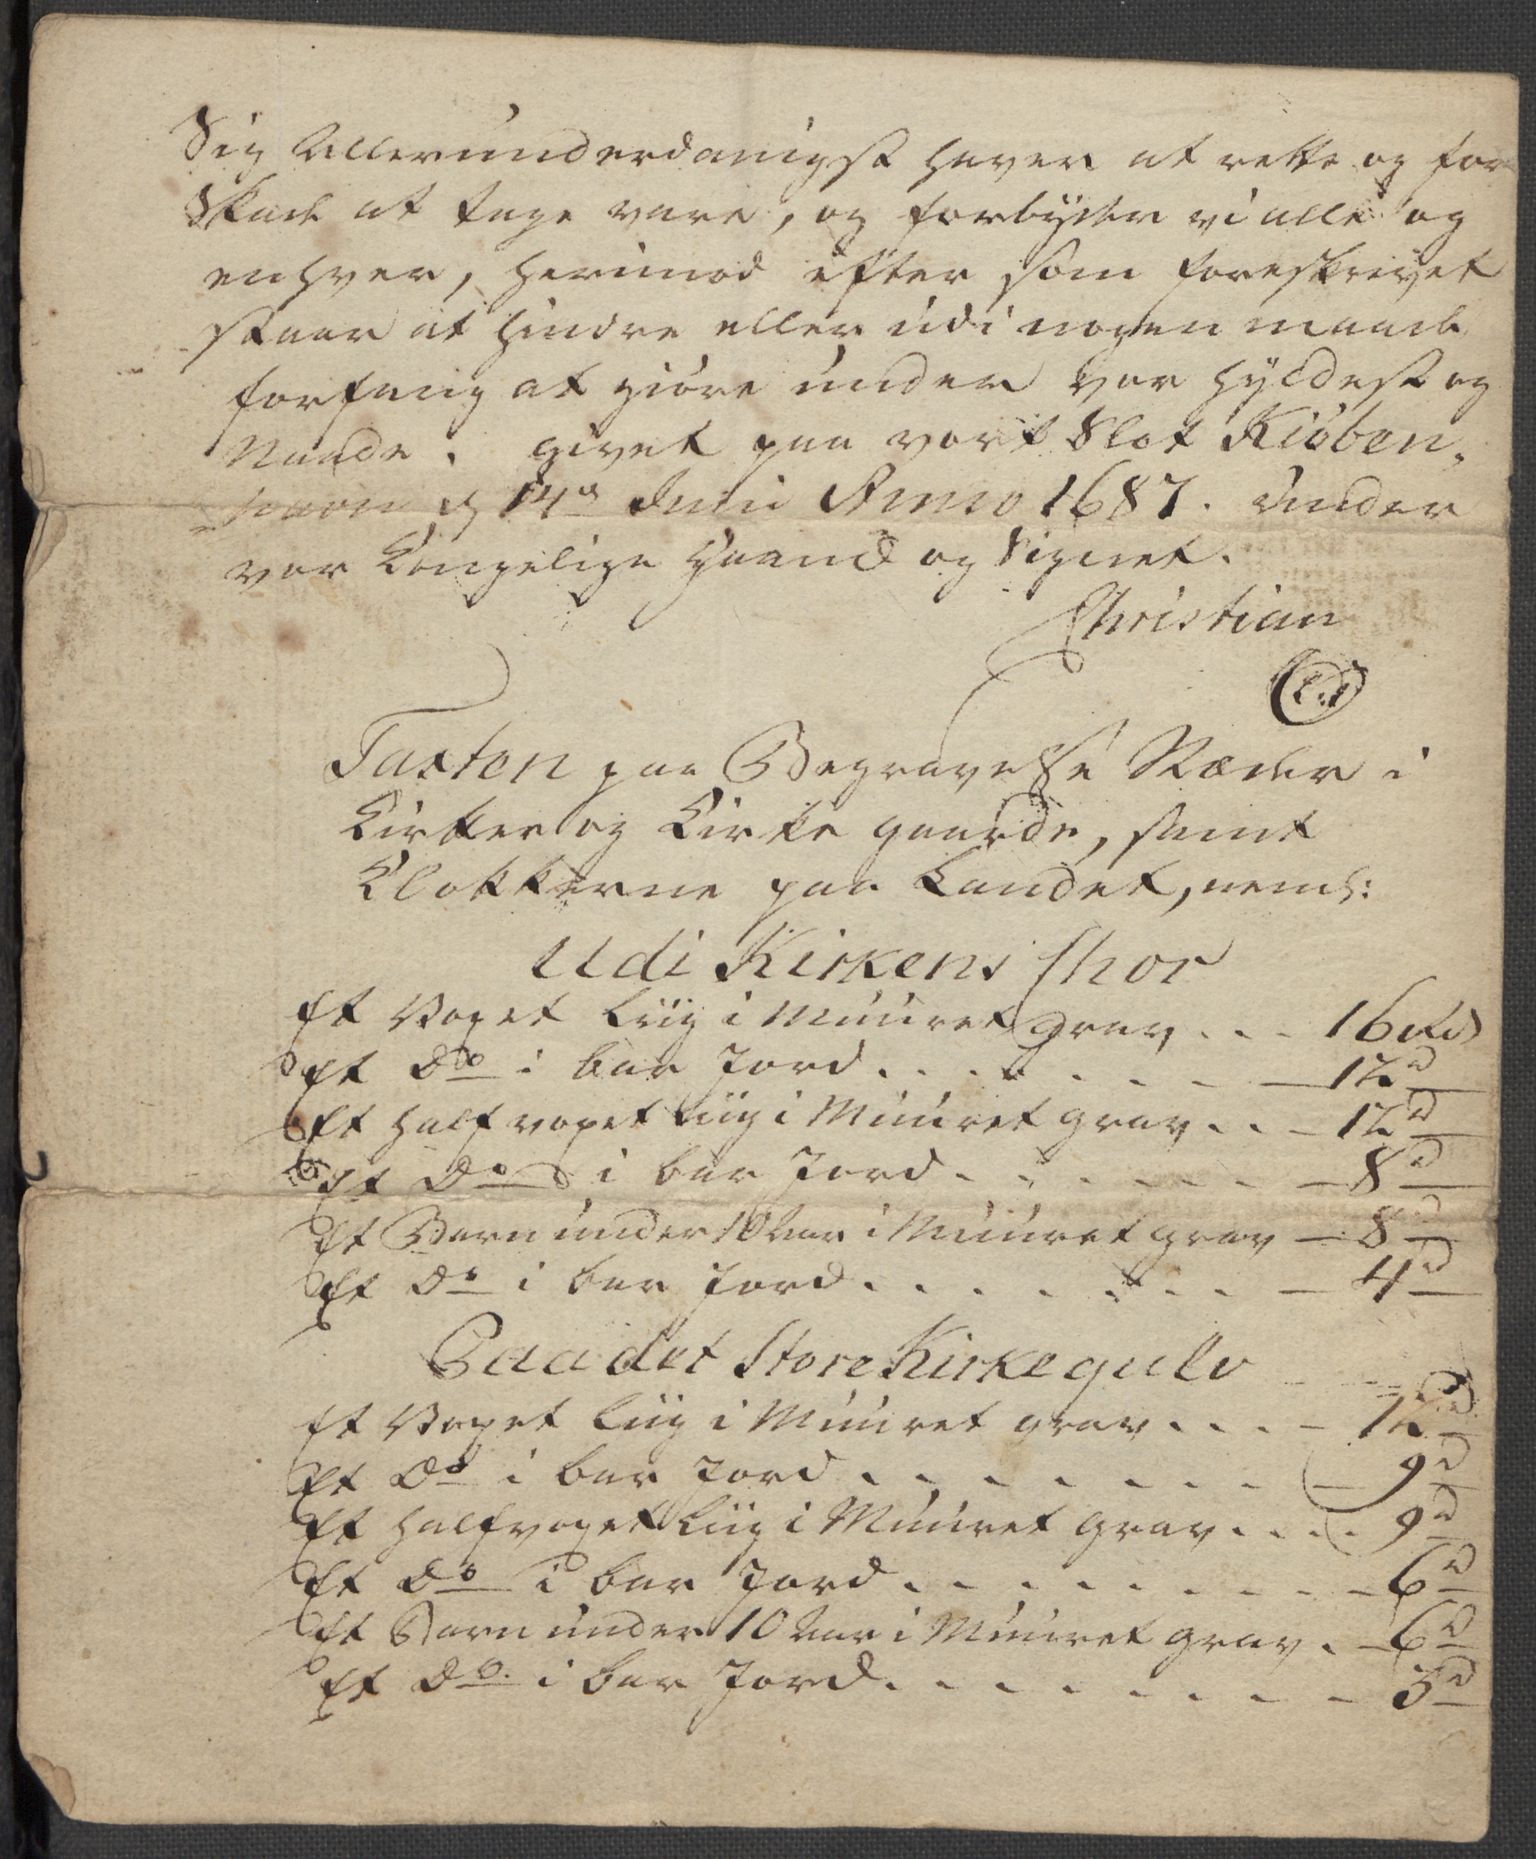 Sig Allerunderdanigst haver at rette og for
Skade at tage vare, og forbyder vi alle og
enhver, herimod efter som foreskrevet
staar at hindre eller udi nogen maade
forfang at giøre under vor hyldest og
Naade. givet paa vort Slot Kiøben,
havn d 14de Junii Anno 1687. under
vor Kongelige Haand og Signet.
Christian
Taxten paa Begravelse Stæder i
Kirker og Kirke gaarde, samt
Klokkerne paa Landet, neml:
Udi Kirkens Chor
Et Voxet Liig i Muuret grav . . . 16 rd
Et Do i bar Jord . . . . . . . 12 d
Et half voxet Liig i Muuret grav . . . 12 d
Et Do i bar Jord . . . . . . . 8 d
Et Barn under 10 Aar i Muuret grav — 8 d
Et Do i bar Jord . . . . . . . 4 d
Paa det Store Kirkegulv
Et Voxet Liig i Muuret grav . . . . 12 d
Et Do i bar Jord . . . . . . . . 9 d
Et halfvoxet Liig i Muuret grav . . . . 9 d
Et Do i bar Jord . . . . . . . . . 6 d
Et Barn under 10 Aar i Muuret grav . — 6 d
Et Do. i bar Jord . . . . . . . . 3 d